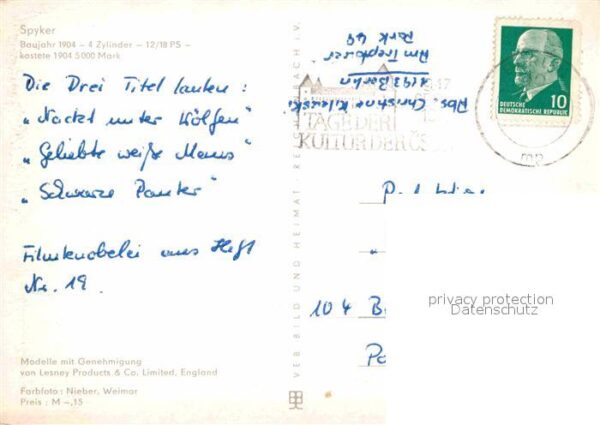 Spyker
Baujahr 1904 – 4 Zylinder – 12/18 PS –
kostete 1904 5000 Mark
Die Drei Titel lauten :
"Nackt unter Wölfen"
"Geliebte weiße Maus"
"Schwarze Panter"
Filmknobelei aus Heft
Nr. 19.
Modelle mit Genehmigung
von Lesney Products & Co. Limited, England
Farbfoto : Nieber, Weimar
Preis : M –,15
VEB BILD UND HEIMAT · REICHENBACH i. V.
Abs. Christine
1193 Berlin
Am Treptower
Park 48
TAGE DER
KULTUR DER ČS
DEUTSCHE
DEMOKRATISCHE REPUBLIK
10
104 B
privacy protection
Datenschutz